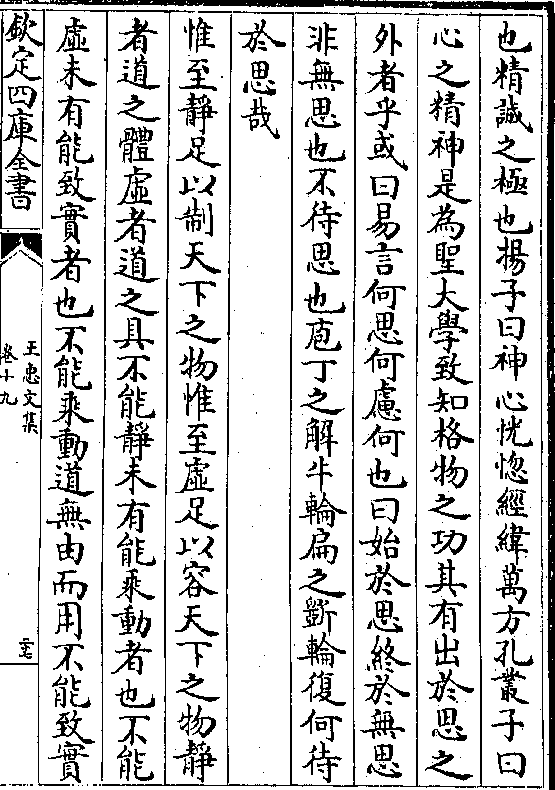 也精誠之極也揚子曰神心恍惚經緯萬方孔叢子曰
心之精神是為聖大學致知格物之功其有出於思之
外者乎或曰易言何思何慮何也曰始於思終於無思
非無思也不待思也庖丁之解牛輪扁之斵輪復何待
於思哉
惟至靜足以制天下之物惟至虛足以容天下之物靜
者道之體虛者道之具不能靜未有能乘動者也不能
虛未有能致實者也不能乘動道無由而用不能致實
欽定四庫全書
王忠文集
卷十九